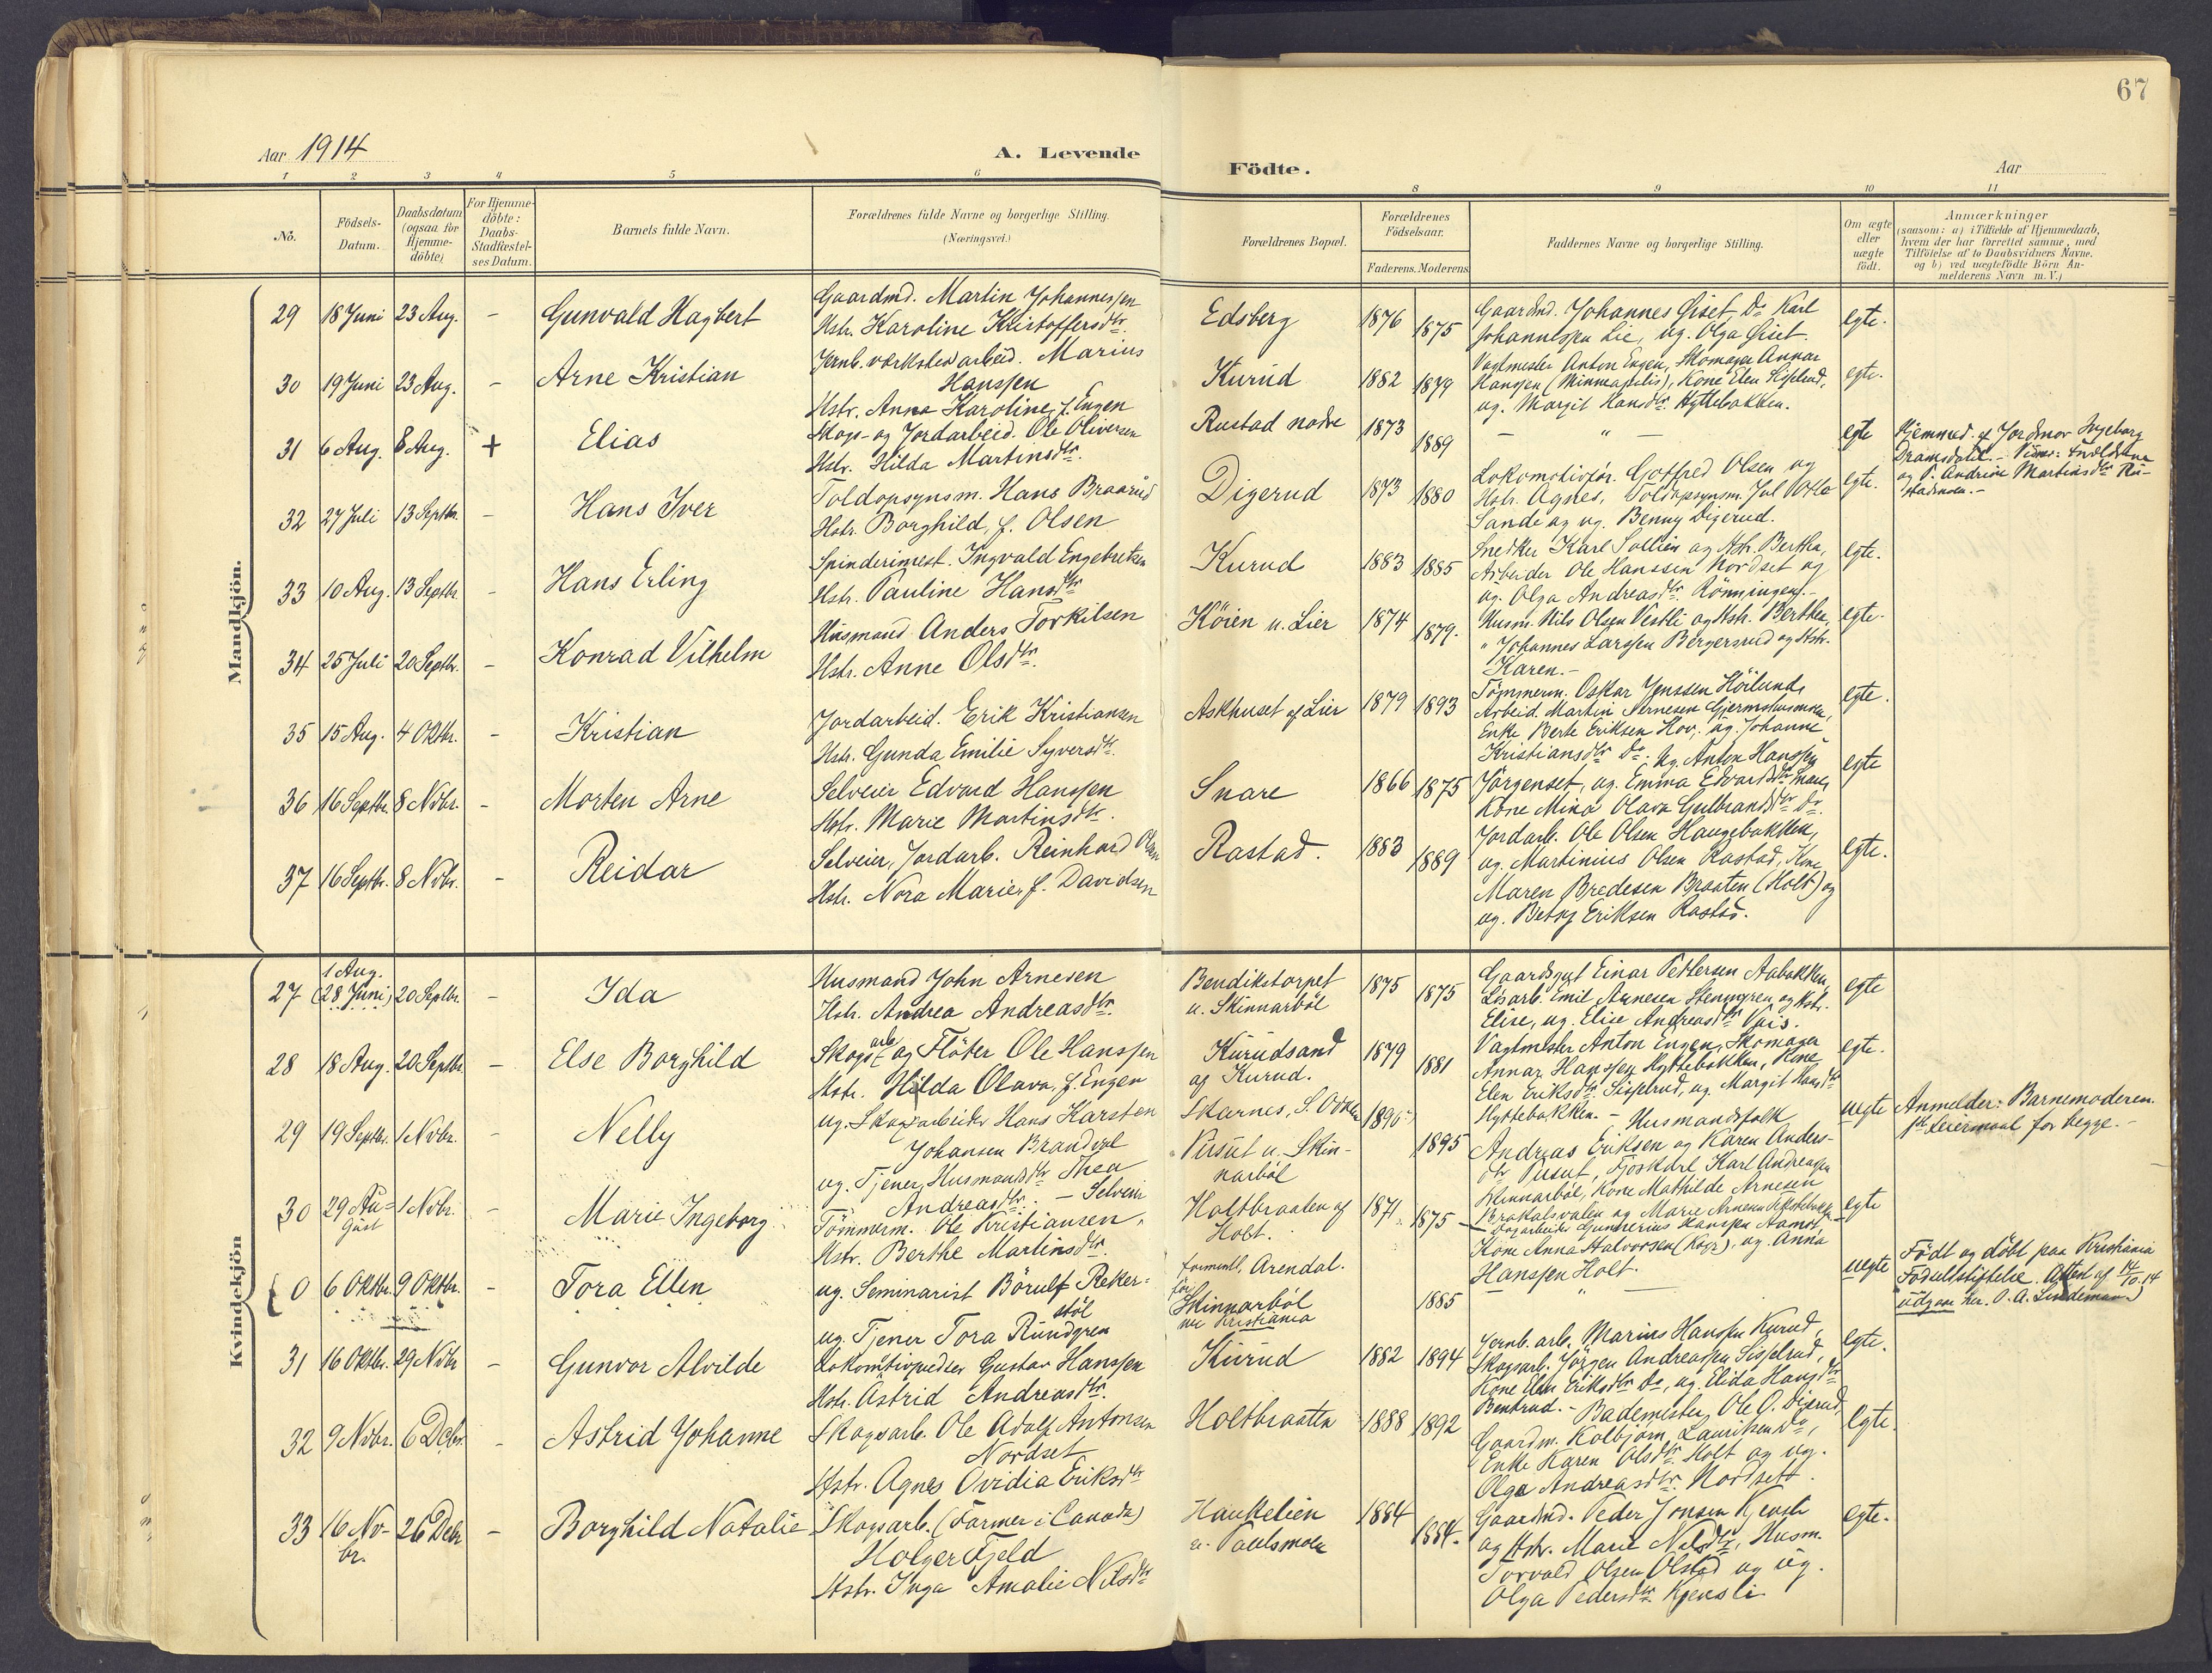 67
Aar 1914
A. Levende
Födte.
Aar
1 2 3 4 5 6 8 9 10 11
No.
Födsels-Datum.
Daabsdatum (ogsaa for Hjemme-döbte)
For Hjemme-döbte: Daabs-Stadfæstel-ses Datum.
Barnets fulde Navn.
Forældrenes fulde Navne og borgerlige Stilling. (Næringsvei.)
Forældrenes Bopæl.
Forældrenes Födselsaar.
Faderens. Moderens
Faddernes Navne og borgerlige Stilling.
Om ægte eller uægte födt.
Anmærkninger
(saasom: a) i Tilfælde af Hjemmedaab,
hvem der har forrettet samme, med
Tilföielse af to Daabsvidners Navne.
og b) ved uægtefödte Börn An-
melderens Navn m. V.)
Mandkjön.
29 18 Juni 23 Aug. - Gunvald Hagbert
Gaardmd. Martin Johannessen
Hstr. Karoline Kristoffersdtr.
Edsberg 1876 1875
Gaardmd. Johannes Giset Do Karl
Johannessen Lie, ug. Olga Giset.
egte.
30 19 Juni 23 Aug. - Arne Kristian
Jernb. værksted arbeid. Marius
Hanssen
Hstr. Anna Karoline, f. Engen
Kurud 1882 1879
Vagtmester Anton Engen, Skomager Annar
Hanssen (Minneapolis), Kone Elen Sisselrud,
ug. Margit Hansdtr. Hyttebakken.
egte.
31 6 Aug. 8 Aug. + Elias
Skogs- og Jordarbeid. Ole Oliversen
Hstr. Hilda Martinsdtr.
Rustad nedre 1873 1889
- " -
egte
Hjemmed. af Jordmor Ingeborg
og P. Andrine Martinsdtr Ru-
stadmoen.-
32 27 Juli 13 Septbr. - Hans Iver
Toldopsynsm. Hans Braarud
Hstr. Borghild, f. Olsen
Digerud 1873 1880
Lokomotivfør. Gotfred Olsen og
Hstr. Agnes, Toldopsynsm. Jul
Sande og ug. Benny Digerud.
egte.
33 10 Aug. 13 Septbr. - Hans Erling
Spinderimest. Ingvald Engebretsen
Hstr. Pauline Hansdtr
Kurud 1883 1885
Snedker Karl Sollien og Hstr. Bertha,
Arbeider Ole Hanssen Nordset og
ug. Olga Andreasdtr. Rönningen.-
egte.
34 25 Juli 20 Septbr. - Konrad Vilhelm
Husmand Anders Torkilsen
Hstr. Anne Olsdtr.
Köien u. Lier 1874 1879.
Husm. Nils Olsen Vestli og Hstr. Berthea,
" Johannes Larssen Bergersrud og Hstr.
Karen.-
egte.
35 15 Aug. 4 Oktbr. - Kristian
Jordarbeid. Erik Kristiansen
Hstr. Gunda Emilie Syversdtr.
Askhuset af Lier 1879 1893
Tömmerm. Oskar Jenssen Höilund,
Arbeid. Martin Arnesen
Enke Berte Eriksen Hov, ug. Johanne
Kristiansdtr Do.
egte.
36 16 Septbr. 8 Novbr. - Morten Arne
Selveier Edvard Hanssen
Hstr. Marie Martinsdtr.
Snare 1866 1875
Ug. Anton Hanssen
Jörgenset, ug. Emma Edvardsdtr Snare,
Kone Mina Olava Gulbrandsdtr Do.
egte
37 16 Septbr. 8 Novbr. - Reidar
Selveier, Jordarb. Reinhard Olsen
Hstr. Nora Marie, f. Davidsen
Rastad. 1883 1889
Jordarb. Ole Olsen Haugebakken,
ug. Martinius Olsen Rastad, Kone
Maren Bredesen Braaten (Holt) og
ug. Betsy Eriksen Rastad.
egte.
Kvindekjön
27 1 Aug. (28 Juni) 20 Septbr. - Ida
Husmand John Arnesen
Hstr. Andrea Andreasdtr.
Bendikstorpet
u. Skinnarböl
1875 1875
Gaardsgut Einar Pettersen Aabakken,
Lösarb. Emil Arnesen Stenmyren og Hstr.
Elise, ug. Elise Andreasdtr
egte
28 18 Aug. 20 Septbr. - Else Borghild
Skogsarb. og Flöter Ole Hanssen
Hstr. Hilda Olava, f. Engen
Kurudsand
af Kurud.
1879 1881
Vagtmester Anton Engen, Skomager
Annar Hanssen Hyttebakken, Kone
Elen Eriksdtr. Sisselrud, ug. Margit Hansdtr
Hyttebakken.-
egte.
29 19 Septbr. 1 Novbr. - Nelly
ug. Skogsarbeider Hans Karsten
Johansen Brandval
ug. Tjener, Husmandsdtr Thea
Andreasdtr.
Skarnes, S. Odalen
Pusut u. Skin-
narböl
1895 1895
Husmandsfolk
Andreas Eriksen og Karen Anders-
dtr Pusut, Fjoskarl Karl Andreassen
Skinnarböl, Kone Mathilde Arnesen
uegte
Anmelder: Barnemoderen.
1ste Leiermaal for begge.-
30 29 Au-gust 1 Novbr. - Marie Ingeborg
- Selveier
Tömmerm. Ole Kristiansen,
Hstr. Berthe Martinsdtr.
Holtbraaten af
Holt.
1871 1875
Skogarbeider Gunnerius Hanssen Aamot,
Kone Anna Halvorsen, ug. Anna
Hanssen Holt.
egte
0 6 Oktbr. 9 Oktbr. Tora Ellen
ug. Seminarist Börulf Reker-
stöl
ug. Tjener Tora Rundgren
formentl. Arendal.
för
Skinnarböl
nu Kristiania
1885
- " -
uegte
Födt og döbt paa Kristiania
Födselsstiftelse. Attest af 14/10.14
udgaar her. O. A. Lindeman.)
31 16 Oktbr. 29 Novbr - Gunvor Alvilde
Lokomotivpudser Gustav Hanssen
Hstr. Astrid Andreasdtr.
Kurud 1882 1894
Jernb. arb. Marius Hanssen Kurud,
Skogsarb. Jörgen Andreassen Sisselrud,
Kone Elen Eriksdtr Do, ug. Elida Hansdtr
Bentrud.-
egte.
32 9 Novbr. 6 Decbr. - Astrid Johanne
Skogsarb. Ole Adolf Antonsen
Nordset
Hstr. Agnes Ovidia Eriksdtr
Holtbraaten 1888 1892
Bademester Ole O. Digerud,
Gaardm. Kolbjörn Lauritsen Do,
Enke Karen Olsdtr. Holt og ug.
Olga Andreasdtr. Nordsett.
egte.
33 16 No-br. 26 Decbr - Borghild Natalie
Skogsarb. (Farmer i Canada)
Holger Fjeld
Hstr. Inga Amalie Nilsdtr
Haukelien
u. Paulsmoen
1884 1884.
Gaardmd. Peder Jonsen Kjensli
og Hstr. Marie Nilsdtr, Husm.
Torvald Olsen Olstad og ug.
Olga Pedersdtr. Kjensli
egte.